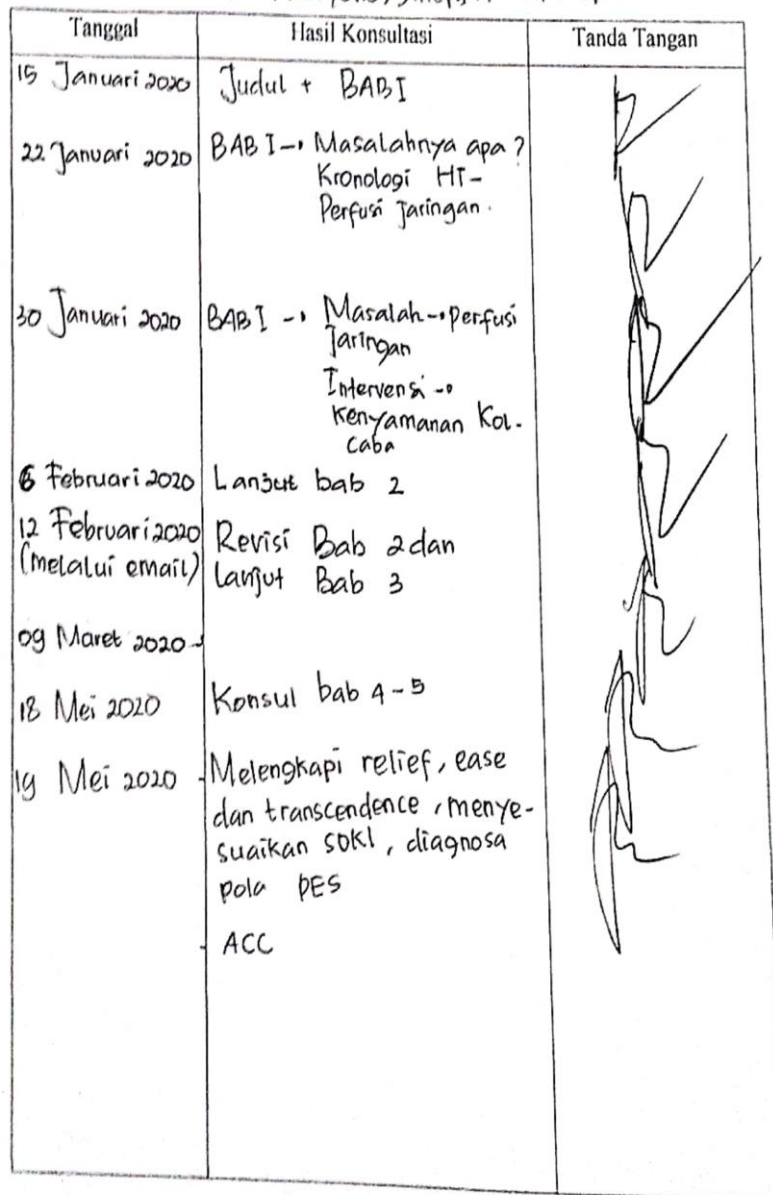 Tanggal
Hasil Konsultasi
Tanda Tangan
15 Januari 2020
Judul + BAB I
22 Januari 2020
BAB I → Masalahnya apa?
Kronologi HT-
Perfusi Jaringan.
30 Januari 2020
BAB I → Masalah → perfusi
Jaringan
Intervensi →
Kenyamanan Kol-
caba
6 Februari 2020
Lanjut bab 2
12 Februari 2020
(melalui email)
Revisi Bab 2 dan
Lanjut Bab 3
09 Maret 2020
18 Mei 2020
Konsul bab 4-5
19 Mei 2020
- Melengkapi relief, ease
dan transcendence, menye-
suaikan SDKI, diagnosa
pola PES
- ACC